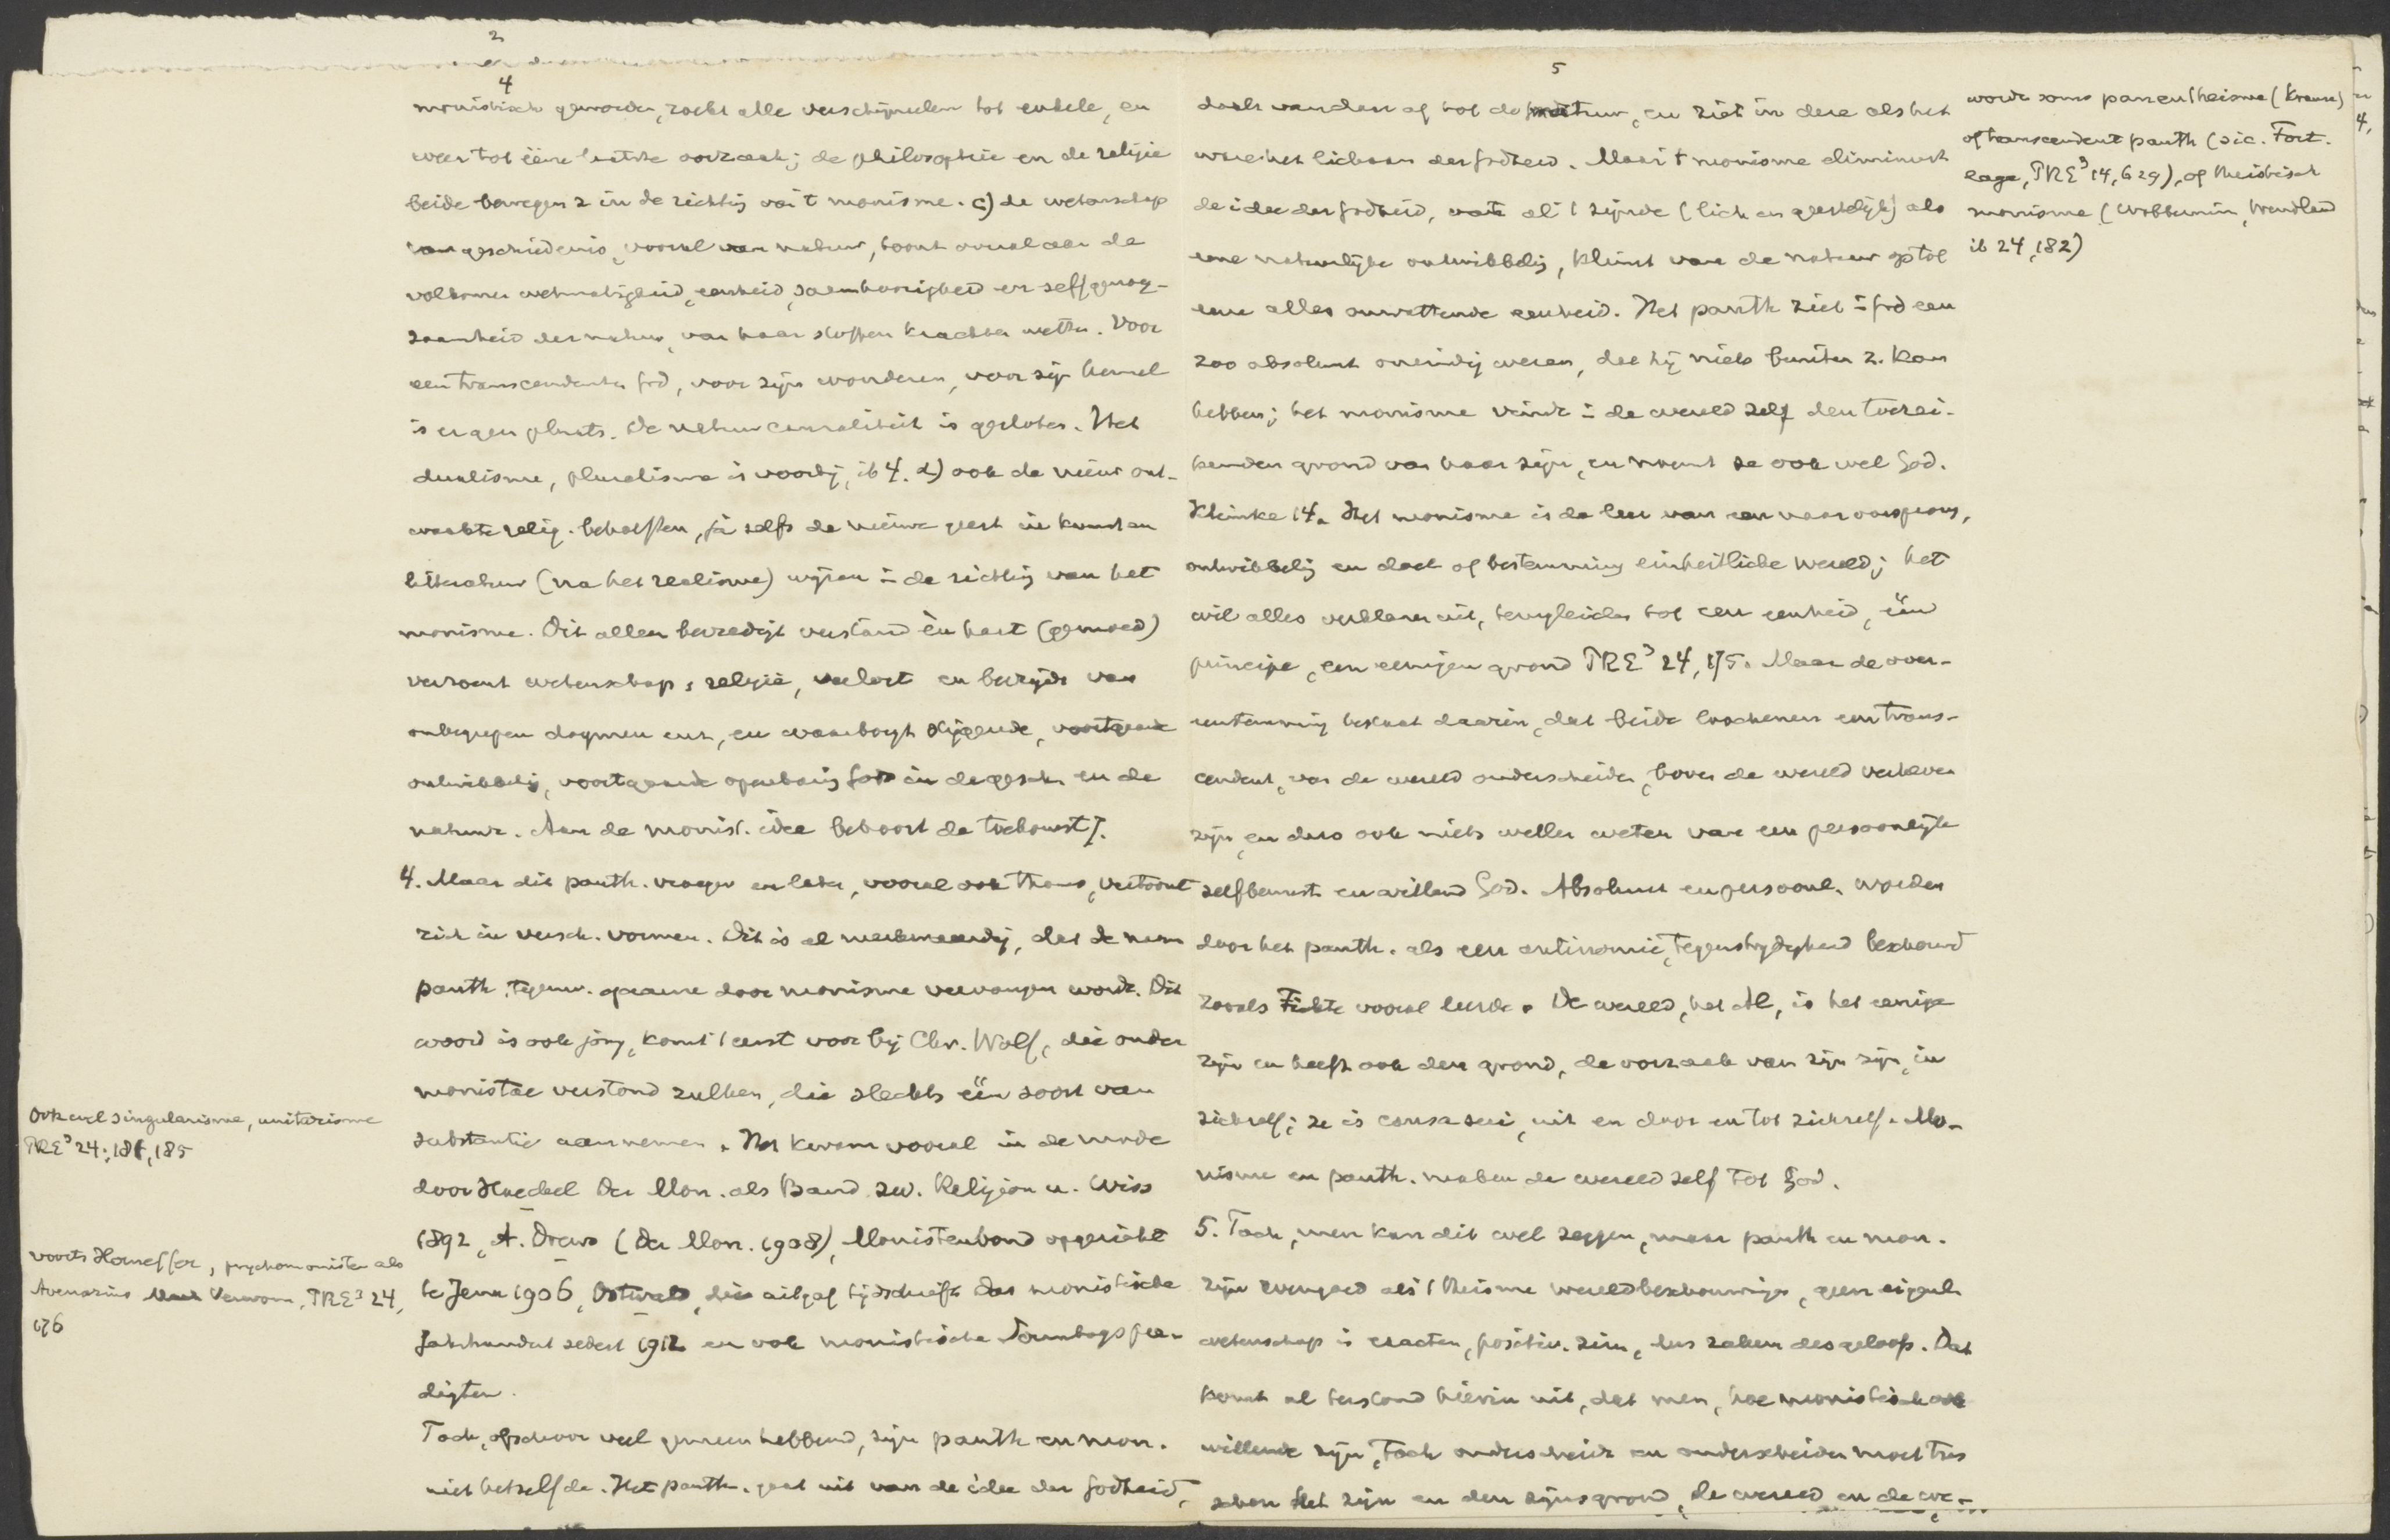 2
4
monistisch geworden, zoekt alle verschijnselen tot enkele, en
weer tot ééne laatste oorzaak; de philosophie en de religie
beide bewegen z in de richtig van 't monisme. c) de wetenschap
van geschiedenis, vooral van natuur, toont overal aan de
volkomen wetmatigheid, eenheid, saamhoorigheid en zelfgenoeg-
zaamheid der natuur, van haar stoffen krachten wetten. Voor
een transcendenten God, voor zijn wonderen, voor zijn hemel
is er geen plaats. De natuurcausaliteit is gesloten. Het
dualisme, pluralisme is voorbij, ib 4. d) ook de nieuw ont-
waakte relig. behoeften, ja zelfs de nieuwe geest in kunst en
litteratuur (na het realisme) wijzen in de richtig van het
monisme. Dit alleen bevredigt verstand èn hart (gemoed)
verzoent wetenschap & religie, verlost en bevrijdt van
onbegrepen dogmen enz, en waarborgt stijgende, voortgaande
ontwikkelig, voortgaande openbarig Gods in de gesch. en de
natuur. Aan de monist. idee behoort de toekomst].
4. Maar dit panth. vroeger en later, vooral ook thans, vertoont
zich in versch. vormen. Dit is al merkwaardig, dat de naam
panth. tegenw. gaarne door monisme vervangen wordt. Dit
woord is ook jong, komt 't eerst voor bij Chr. Wolf, die onder
monistae verstond zulken, die slechts één soort van
substantie aannemen. Het kwam vooral in de mode
door Haeckel Der Mon. als Band zw. Religion u. Wiss
1892, A. Drews (Der Mon. 1908), Monistenbond opgericht
te Jena 1906, Ostwald, die uitgaf tijdschrift Das monistische
Jahrhundert sedert 1912 en ook monistische Sonntagspre-
digten.
Toch, ofschoon veel gemeen hebbend, zijn panth en mon.
niet hetzelfde. Het panth. gaat uit van de idee der Godheid,
Ook wel singularisme, unitarisme
PRE³ 24, 181, 185
voorts Horneffer, psychomonisten als
Avenarius Verworn, PRE³ 24,
176
5
daalt vandaar af tot de natuur, en ziet in deze als het
ware het lichaam der Godheid. Maar 't monisme elimineert
de idee der Godheid, vat al 't zijnde (lich en geestelijk) als
eene natuurlijke ontwikkelig, klimt van de natuur op tot
eene alles omvattende eenheid. Het panth ziet in God een
zoo absoluut oneindig wezen, dat hij niets buiten z. kan
hebben; het monisme vindt in de wereld zelf den toerei-
kenden grond van haar zijn, en noemt ze ook wel God.
Klimke 14. Het monisme is de leer van een naar oorsprong,
ontwikkelig en doel of bestemming einheitliche wereld; het
wil alles verklaren uit, terugleiden tot een eenheid, één
principe, een eenigen grond PRE³ 24, 175. Maar de over-
eenstemming bestaat daarin, dat beide loochenen een trans-
cendent, van de wereld onderscheiden, boven de wereld verheven
zijn, en dus ook niets willen weten van een persoonlijk
zelfbewust en willend God. Absoluut en persoonl. worden
door het panth. als een antinomie, tegenstrijdigheid beschouwd
zooals Fichte vooral leerde. De wereld, het Al, is het eenige
zijn en heeft ook den grond, de oorzaak van zijn zijn, in
zichzelf; ze is causa sui, uit en door en tot zichzelf. Mo-
nisme en panth. maken de wereld zelf tot God.
5. Toch, men kan dit wel zeggen, maar panth en mon.
zijn evengoed als 't theisme wereldbeschouwingen, geen eigenl.
wetenschap in exacten, positiv. zin, dus zaken des geloofs. Dat
komt al terstond hierin uit, dat men, hoe monistisch ook
willende zijn, toch onderscheidt en onderscheiden moet tus
schen het zijn en den zijnsgrond, de wereld en de we-
wordt soms panentheisme (Krause)
of transcendent panth (sic. Fort-
lage, PRE³ 14, 629), of theistisch
monisme (Wobbermin, Wendland
ib 24, 182)
4,